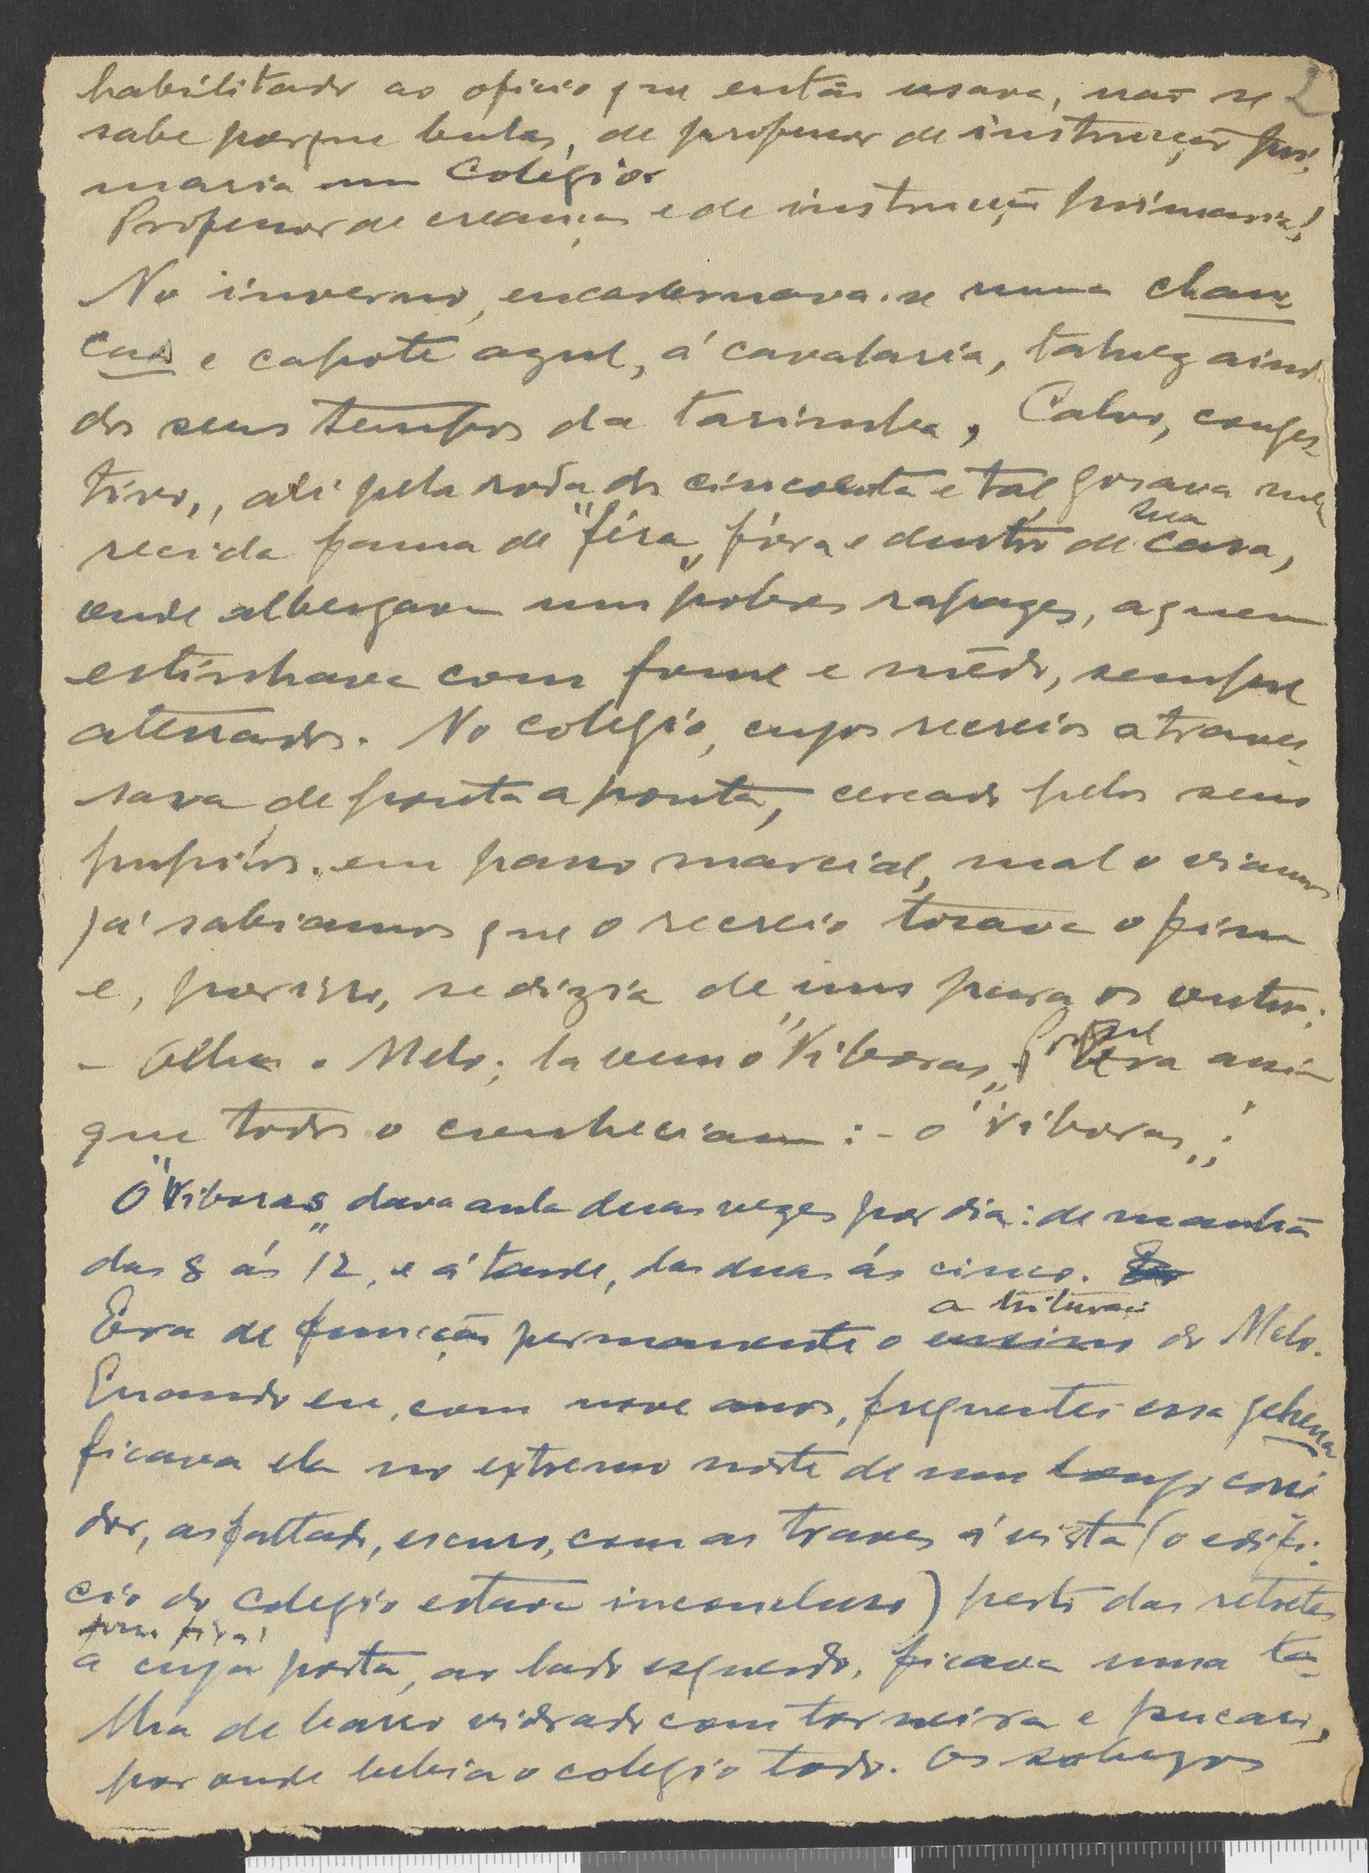 2
habilitado ao oficio que então usava, não se
sabe porque bulas, de professor de instrução pri-
maria num Colégio.
Professor de creanças e de instrução primaria!
No inverno, encadernava-se numa chan-
ca e capote azul, á cavalaria, talvez aind
dos seus tempos da tarimba. Calvo, conges-
tivo, ali pela roda dos cincoenta e tal, gosava me-
recida fama de "féra„ fóra e dentro de sua casa,
onde albergava uns pobres rapazes, a quem
estinhava com fome e mêdo, sempre
aterrados. No colegio, cujos recreios atraves-
sava de ponta a ponta, cercado pelos seus
pupilos, em passo marcial, mal o viamos
já sabiamos que o recreio tocava o fim
e, por isso, se dizia de uns para os outros:
- Olha o Melo; la vem o "Viboras„! Porque era assim
que todos o conheciam: - o "Viboras„!
O "Viboras„ dava aula duas vezes por dia: de manhã
das 8 ás 12, e á tarde, das duas ás cinco.
Era de função permanente o ensino a trituraç do Melo.
Quando eu, com nove anos, frequentei essa gehena
ficava ela no extremo norte de um longo corre
dor, asfaltado, escuro, com as traves á vista (o edifi-
cio do colegio estava inconcluso) perto das retretes
a cuja porta, ao lado esquerdo, ficava uma ta-
lha de barro vidrado com torneira e pucaro,
por onde bebia o colegio todo. Os